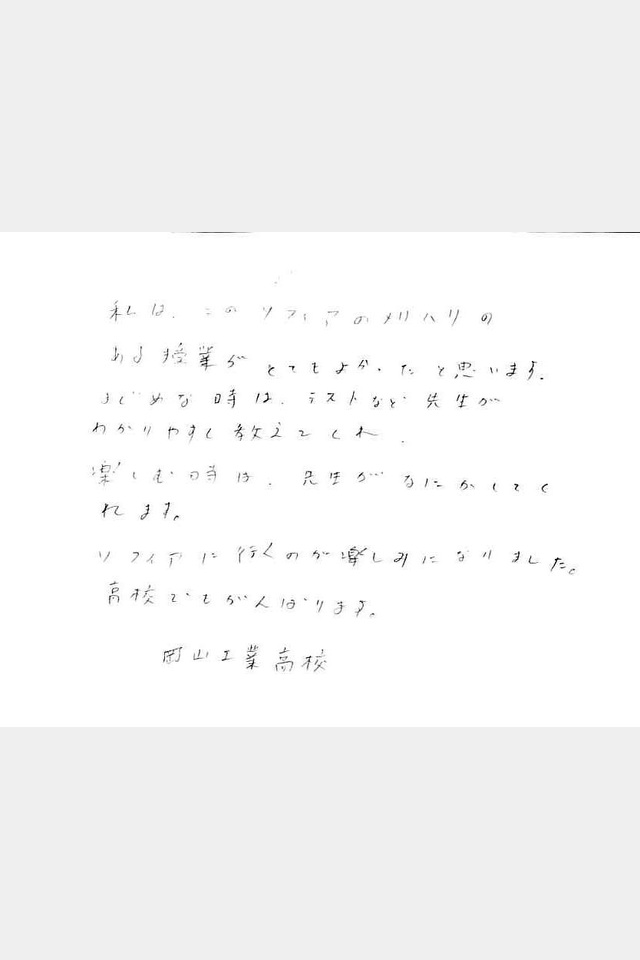 私は、このソフィアのメリハリの
ある授業がとてもよかったと思います。
まじめな時は、テストなど先生が
わかりやすく教えてくれ、
楽しむ時は、先生がなにかしてく
れます。
ソフィアに行くのが楽しみになりました。
高校でもがんばります。
岡山工業高校